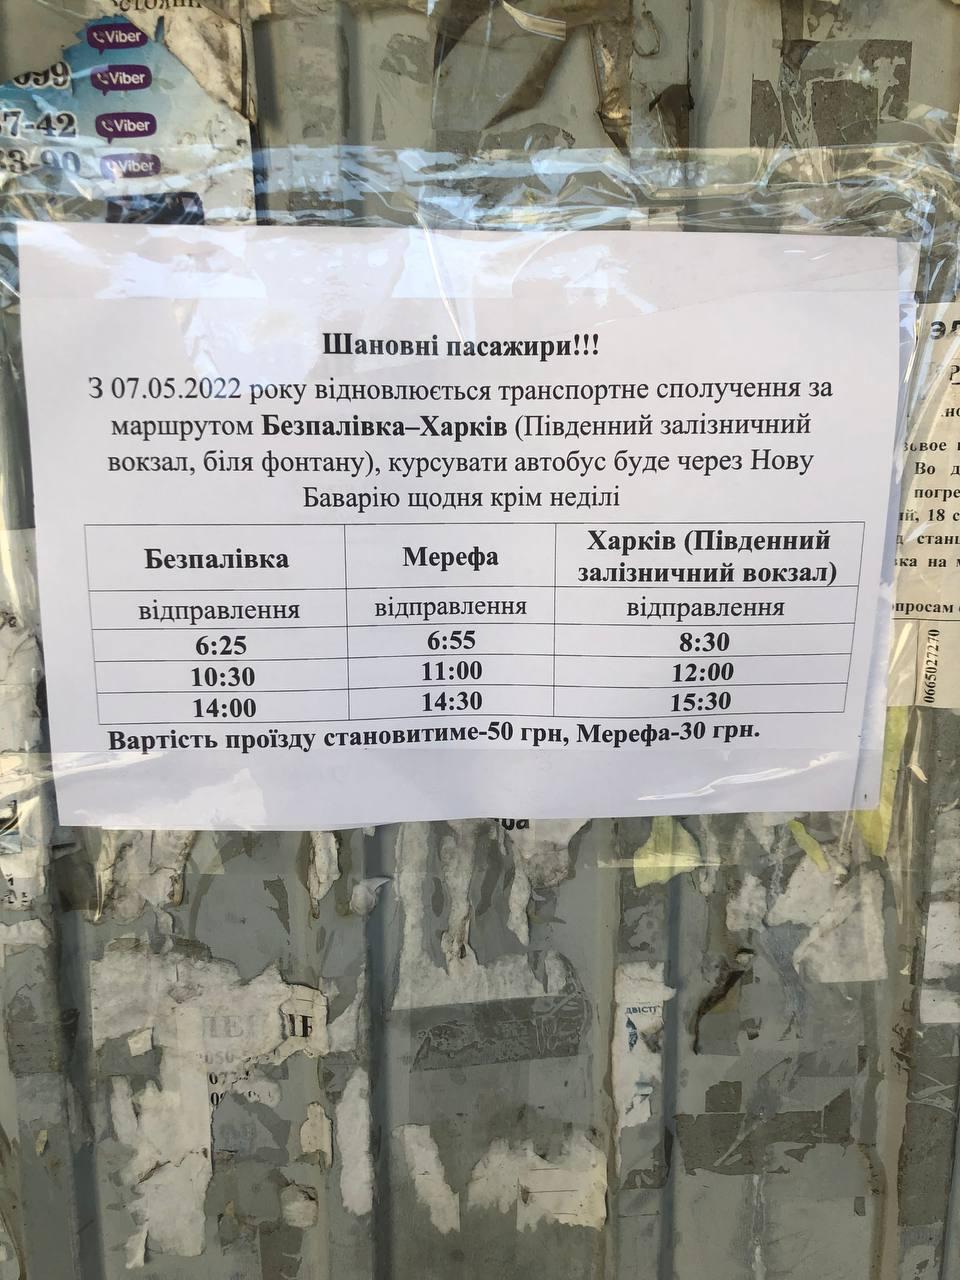 Viber
099 Viber
7-42 Viber
3-90 Viber
Шановні пасажири!!!
З 07.05.2022 року відновлюється транспортне сполучення за
маршрутом Безпалівка–Харків (Південний залізничний
вокзал, біля фонтану), курсувати автобус буде через Нову
Баварію щодня крім неділі
Безпалівка Мерефа Харків (Південний
залізничний вокзал)
відправлення відправлення відправлення
6:25 6:55 8:30
10:30 11:00 12:00
14:00 14:30 15:30
Вартість проїзду становитиме-50 грн, Мерефа-30 грн.
Во д
погре
18 с
станц
ка на
опросам
0665027270
двісті